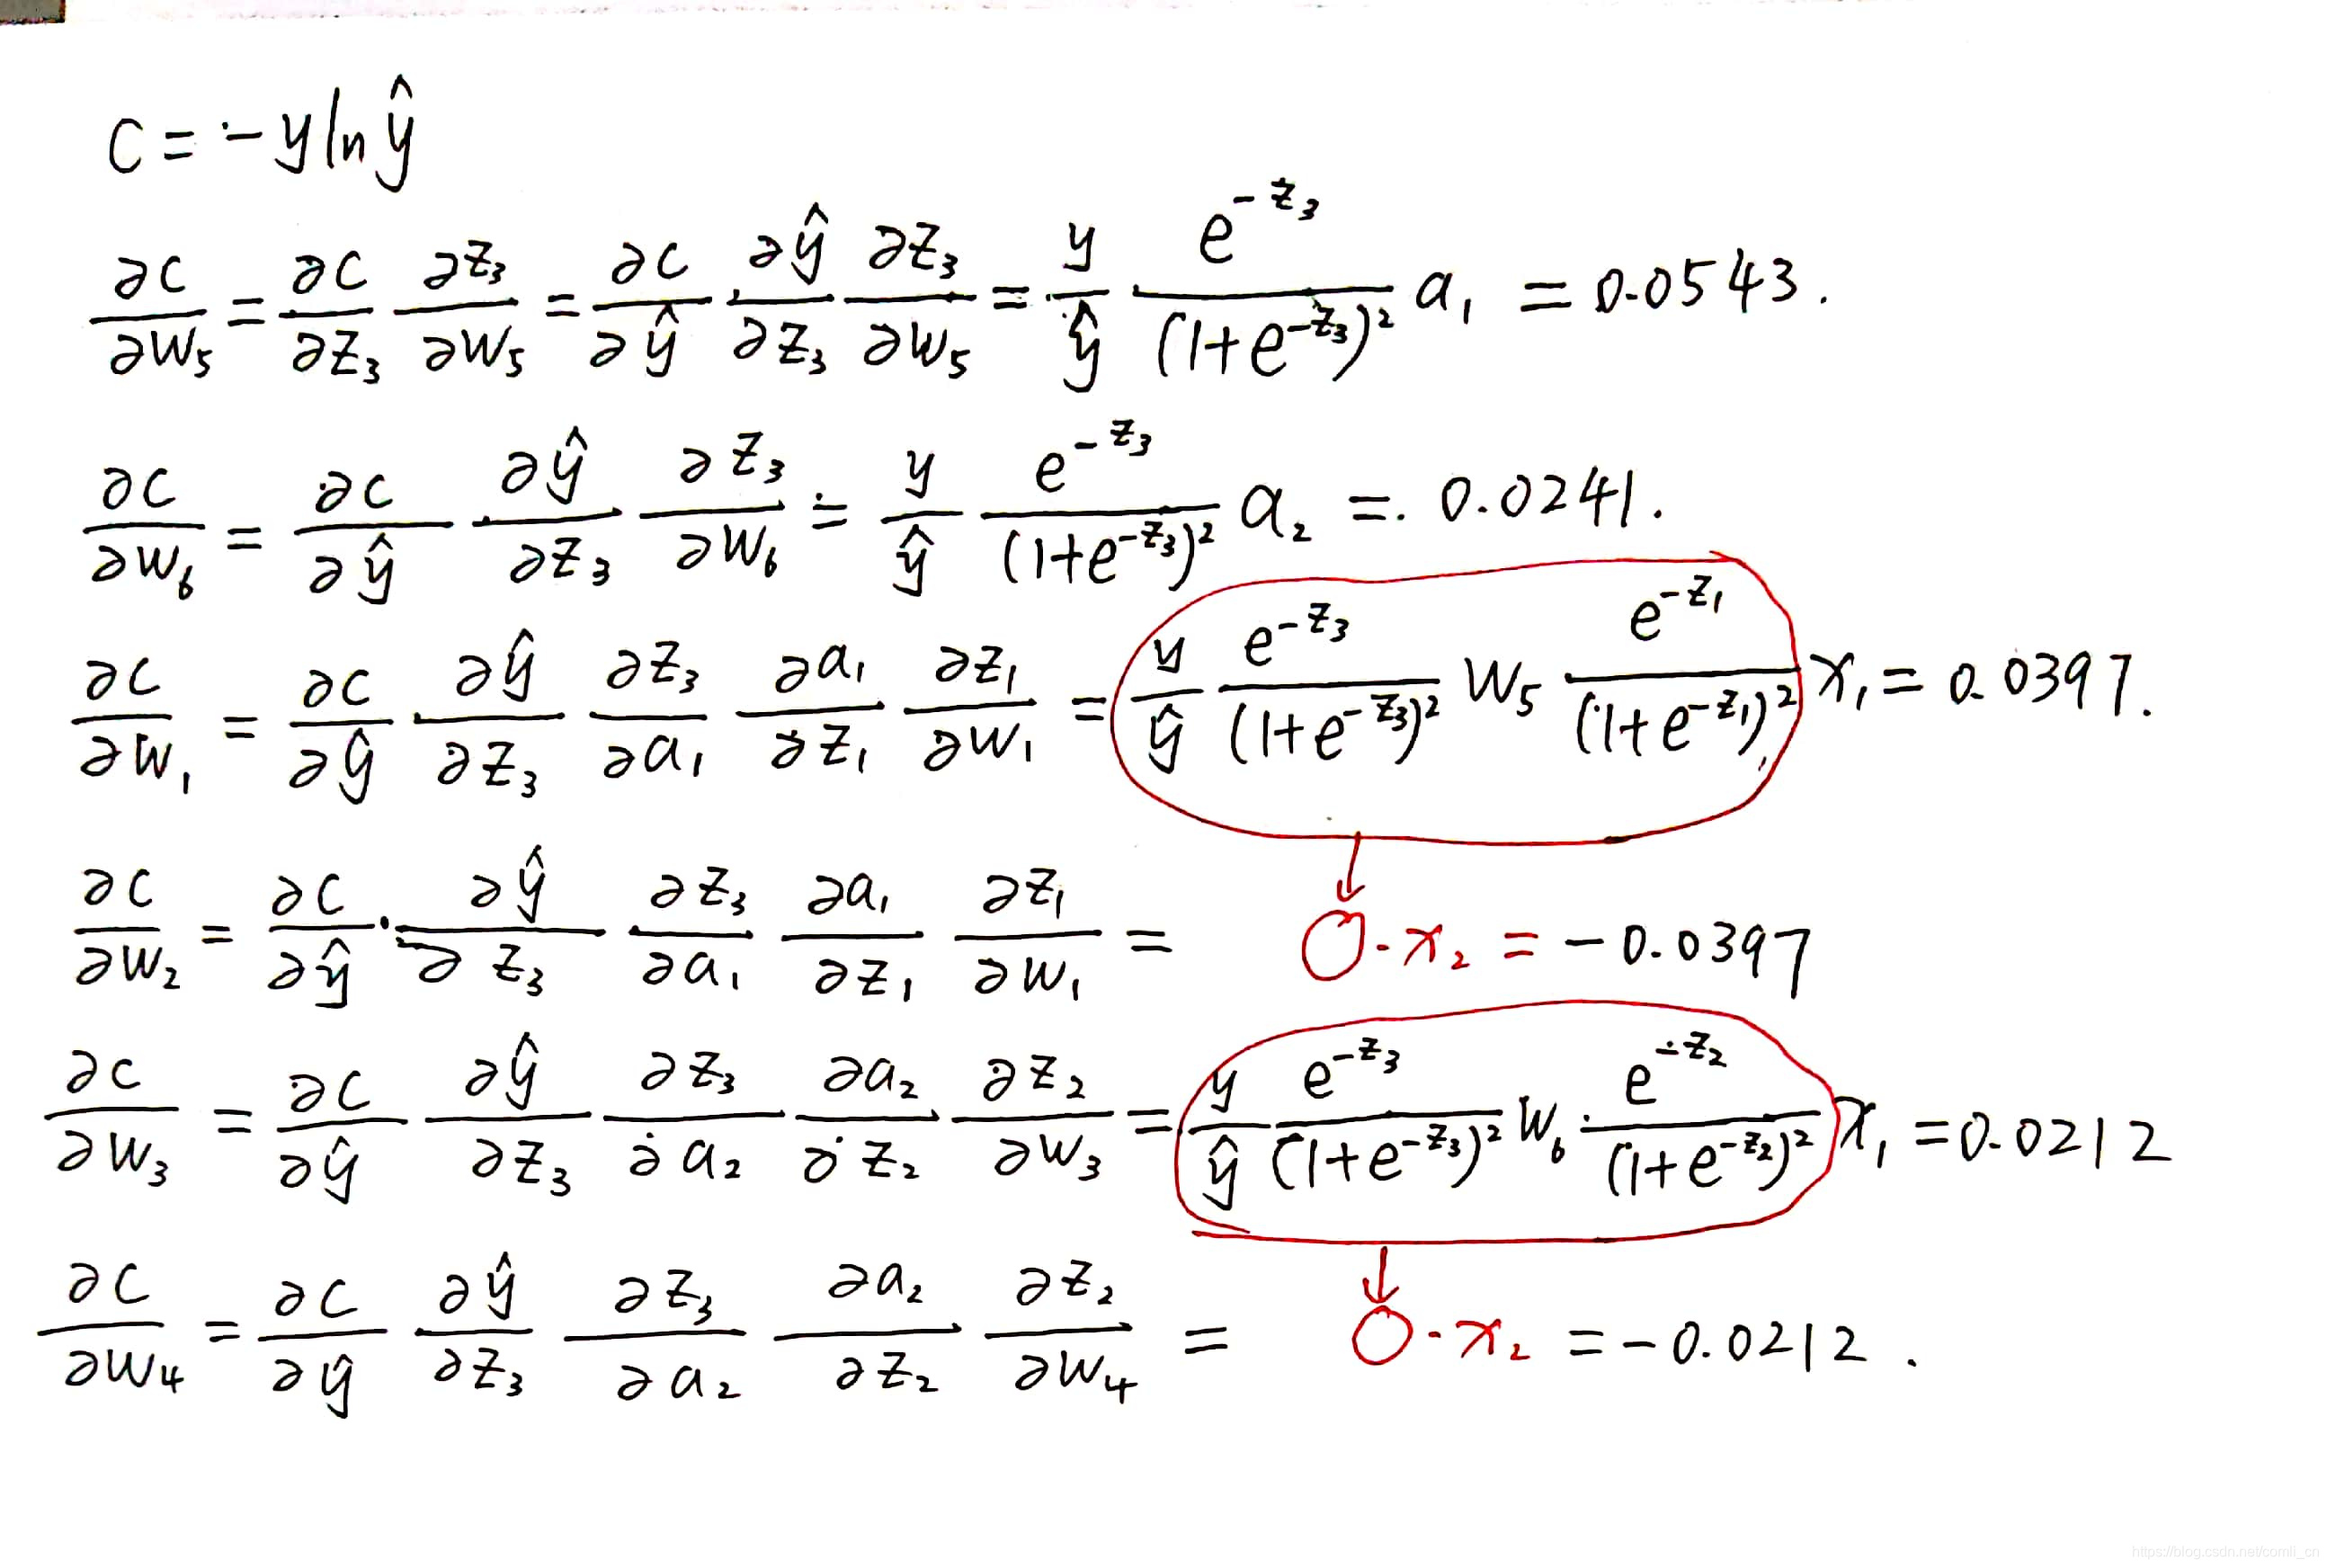 C = -y ln ŷ
∂C/∂W₅ = ∂C/∂Z₃ ∂Z₃/∂W₅ = ∂C/∂ŷ ∂ŷ/∂Z₃ ∂Z₃/∂W₅ = y/ŷ e^(-Z₃)/(1+e^(-Z₃))² a₁ = 0.0543.
∂C/∂W₆ = ∂C/∂ŷ ∂ŷ/∂Z₃ ∂Z₃/∂W₆ = y/ŷ e^(-Z₃)/(1+e^(-Z₃))² a₂ = 0.0241.
∂C/∂W₁ = ∂C/∂ŷ ∂ŷ/∂Z₃ ∂Z₃/∂a₁ ∂a₁/∂Z₁ ∂Z₁/∂W₁ = y/ŷ e^(-Z₃)/(1+e^(-Z₃))² W₅ e^(-Z₁)/(1+e^(-Z₁))² x₁ = 0.0397.
∂C/∂W₂ = ∂C/∂ŷ · ∂ŷ/∂Z₃ ∂Z₃/∂a₁ ∂a₁/∂Z₁ ∂Z₁/∂W₁ = O · x₂ = -0.0397
∂C/∂W₃ = ∂C/∂ŷ ∂ŷ/∂Z₃ ∂Z₃/∂a₂ ∂a₂/∂Z₂ ∂Z₂/∂W₃ = y/ŷ e^(-Z₃)/(1+e^(-Z₃))² W₆ · e^(-Z₂)/(1+e^(-Z₂))² x₁ = 0.0212
∂C/∂W₄ = ∂C/∂ŷ ∂ŷ/∂Z₃ ∂Z₃/∂a₂ ∂a₂/∂Z₂ ∂Z₂/∂W₄ = O · x₂ = -0.0212.
https://blog.csdn.net/comli_cn